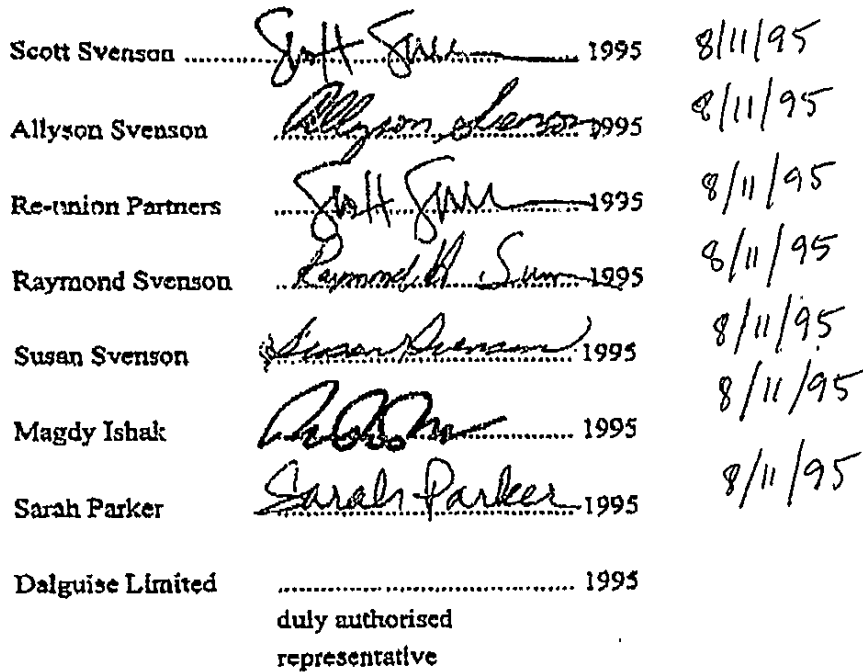 Scott Svenson ........ Scott Sven 1995 8/11/95
Allyson Svenson ........ Allyson Svenson 1995 8/11/95
Re-union Partners ........ Scott Sven 1995 8/11/95
Raymond Svenson ........ Raymond 1995 8/11/95
Susan Svenson ........ Susan Svenson 1995 8/11/95
Magdy Ishak ........ 1995 8/11/95
Sarah Parker ........ Sarah Parker 1995 8/11/95
Dalguise Limited ........ 1995
duly authorised
representative